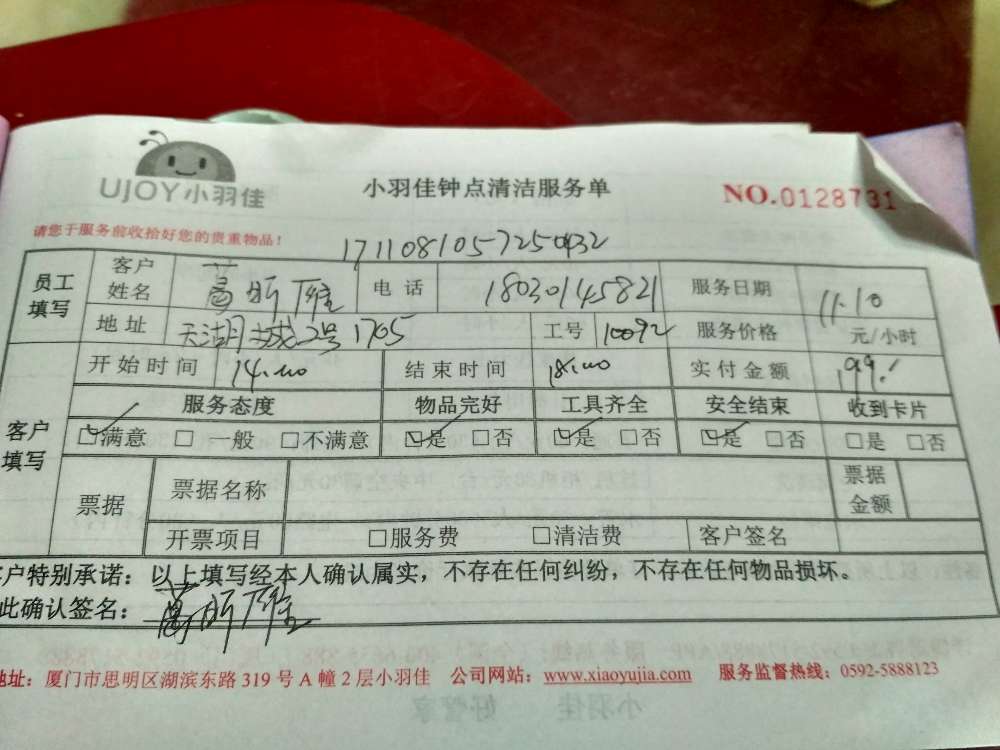 UJOY小羽佳
小羽佳钟点清洁服务单
NO.0128731
请您于服务前收拾好您的贵重物品！
1711081057250432
员工填写 客户姓名 葛昕 电话 18030145821 服务日期 11.10
地址 天湖月城2号1705 工号 10092 服务价格 元/小时
客户填写 开始时间 14:00 结束时间 18:00 实付金额 199.
服务态度 物品完好 工具齐全 安全结束 收到卡片
☑满意 □一般 □不满意 ☑是 □否 ☑是 □否 ☑是 □否 □是 □否
票据 票据名称 票据金额
开票项目 □服务费 □清洁费 客户签名
客户特别承诺：以上填写经本人确认属实，不存在任何纠纷，不存在任何物品损坏。
此确认签名：葛昕
地址：厦门市思明区湖滨东路319号A幢2层小羽佳 公司网站：www.xiaoyujia.com 服务监督热线：0592-5888123